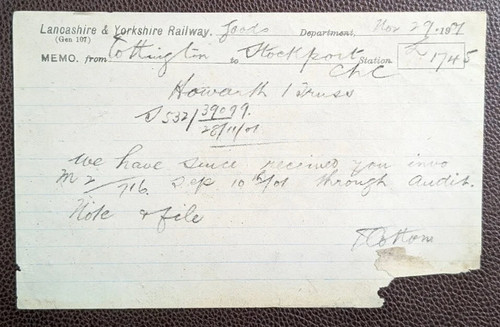 Lancashire & Yorkshire Railway. Goods Department, Nov 29 · 1907
(Gen 107)
MEMO. from Tottington to Stockport Station £ 1745
CLC
Howarth 1 Truss
S 532/39099.
28/11/07
We have since received you invo
M 2/716. Sep 10th/07 through Audit.
Note & file
T Cottam